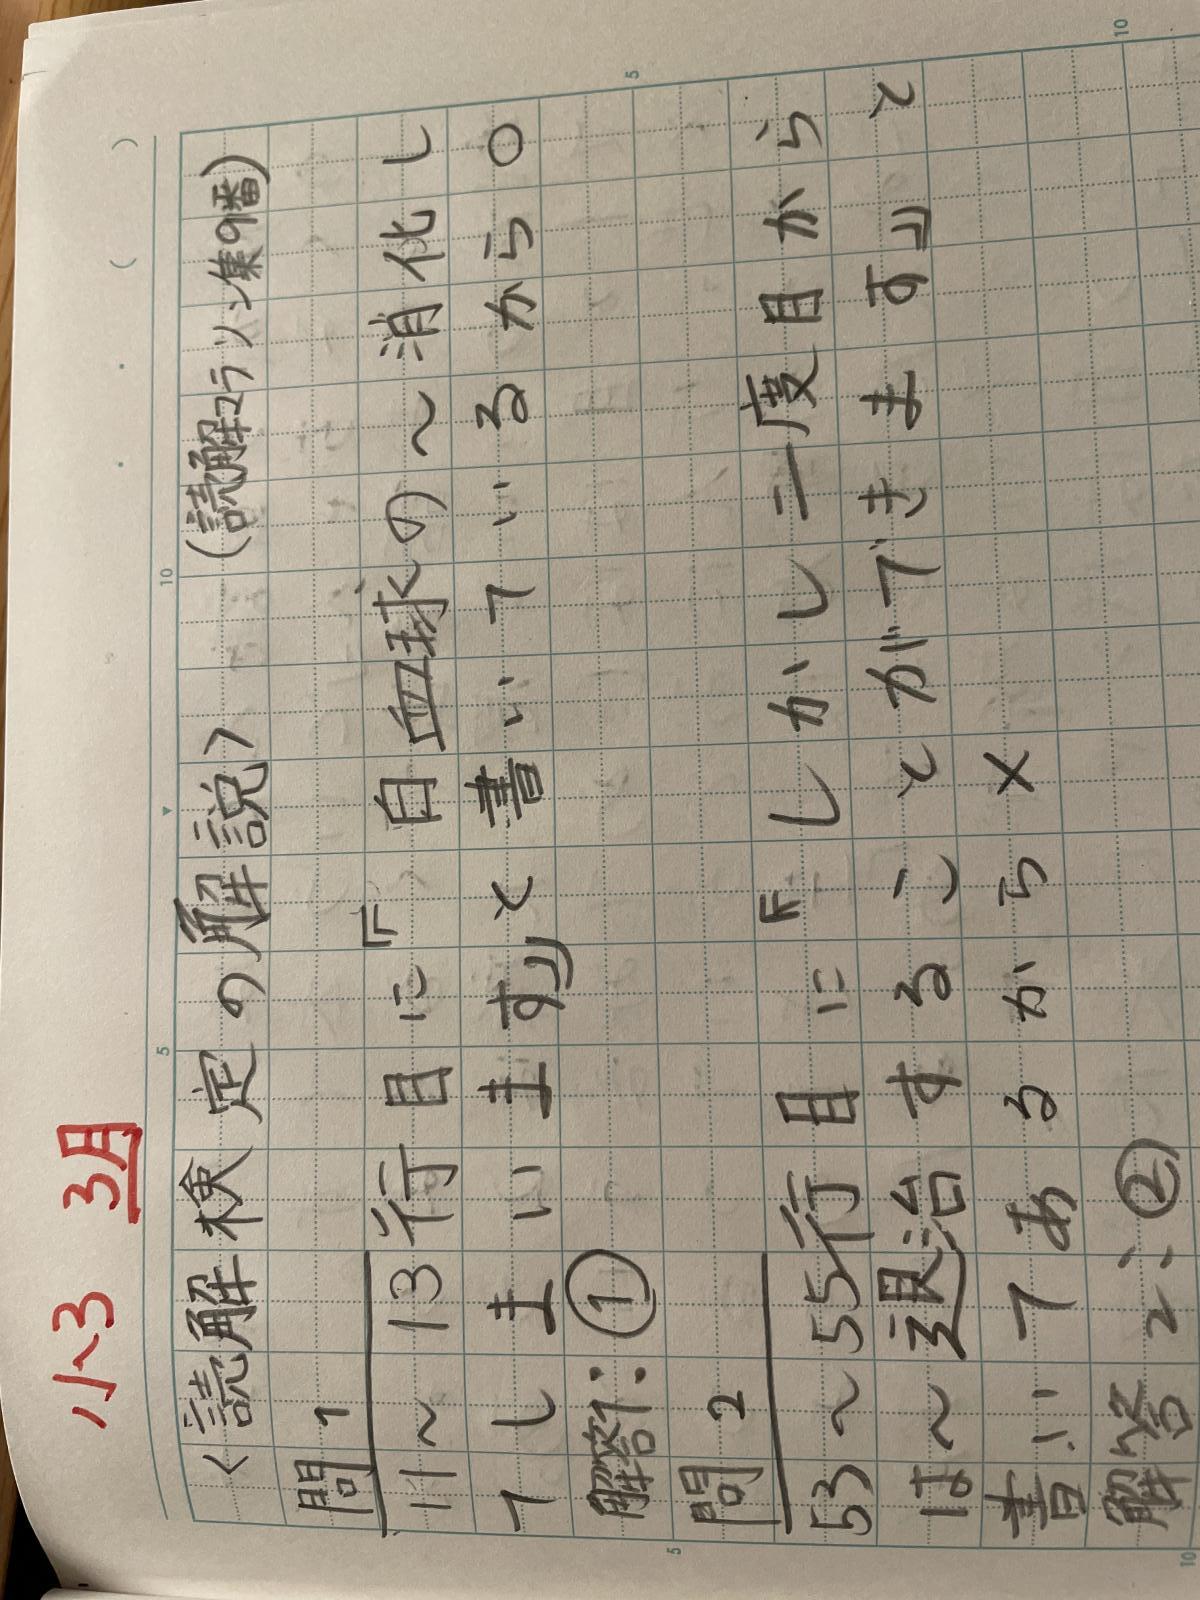 小3 3月
<読解検定の解説> (読解マラソン集9番)
問1
11〜13行目に『白血球の〜消化し
てしまいます』と書いているから○
解答:①
問2
53〜55行目に『しかし二度目から
は〜退治することができます』と
書いてあるから×
解答2:②